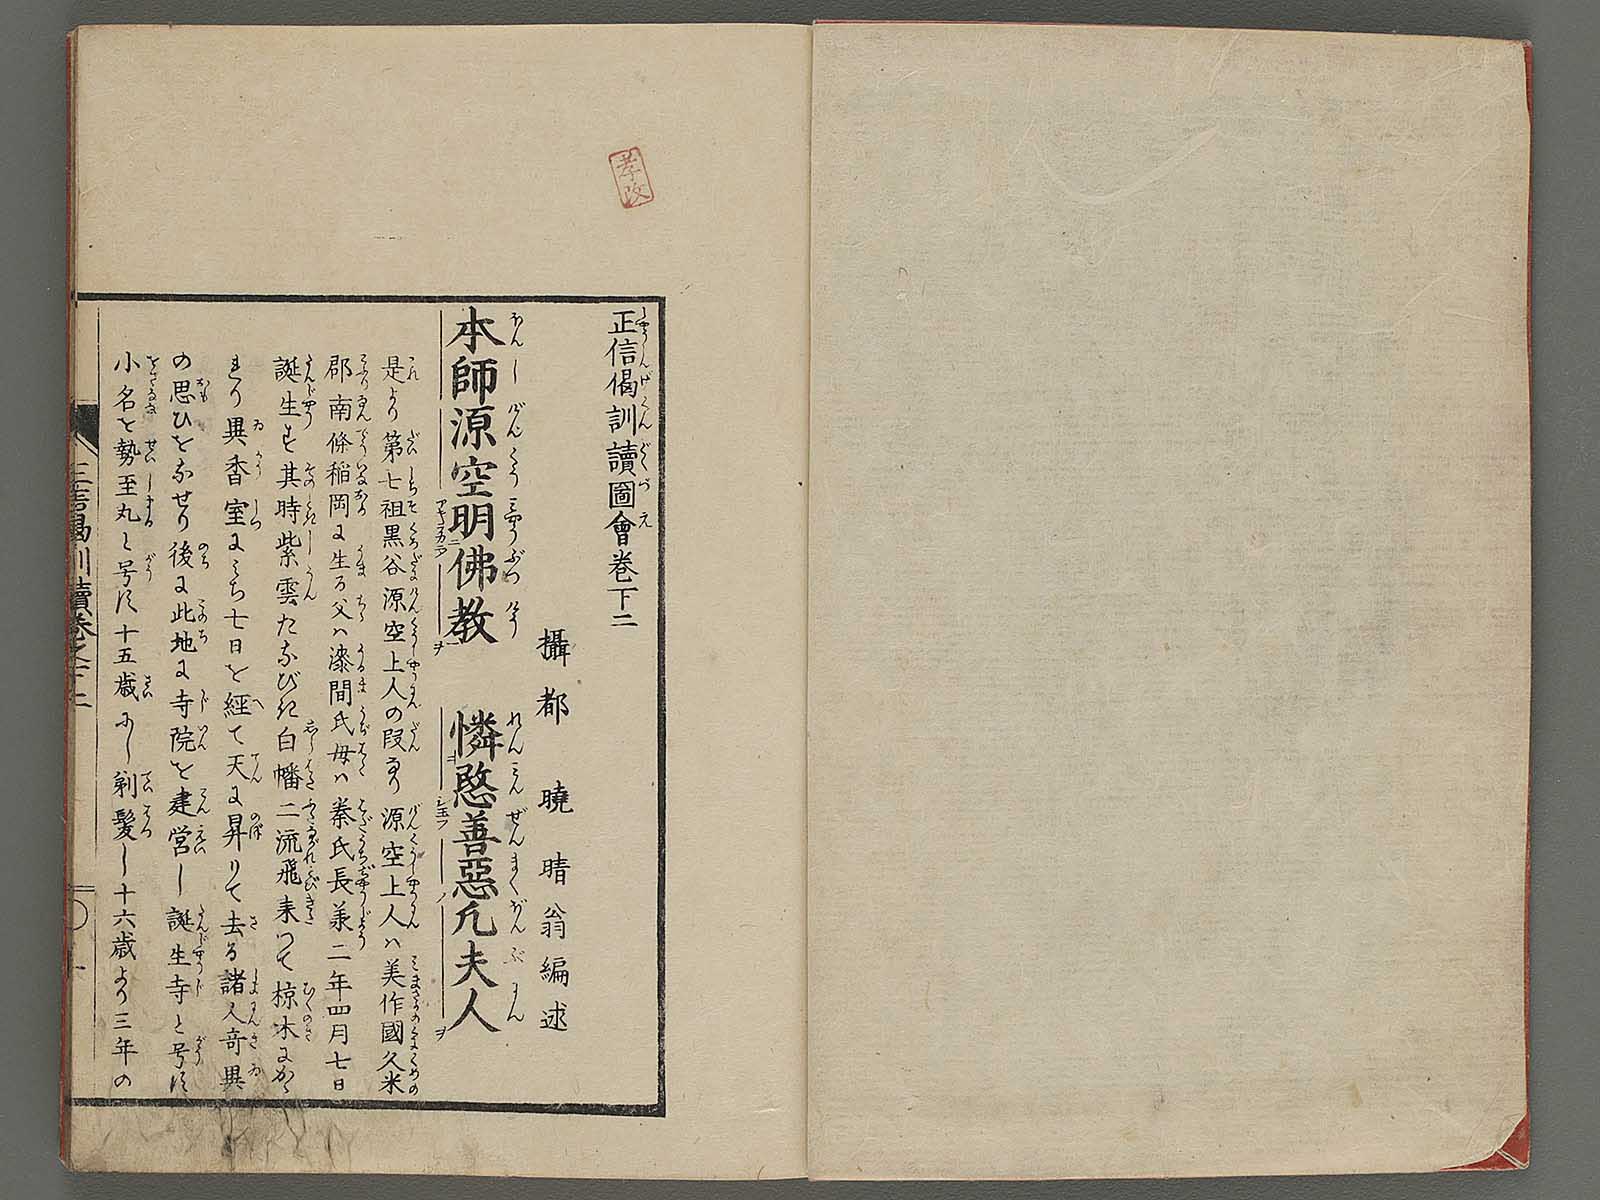 正信偈訓讀圖會巻下二
攝都 曉晴翁編述
本師源空明佛教 憐愍善惡凡夫人
是より第七祖黒谷源空上人の段なり源空上人ハ美作國久米
郡南條稲岡に生る父ハ漆間氏母ハ秦氏長承二年四月七日
誕生す其時紫雲たなびき白幡二流飛来つて椋木にかゝ
れり異香室にみち七日を經て天に昇りて去る諸人奇異
の思ひをなせり後に此地に寺院を建営し誕生寺と号す
小名を勢至丸と号す十五歳にし剃髪し十六歳より三年の
正信偈訓讀巻之下二
孝改